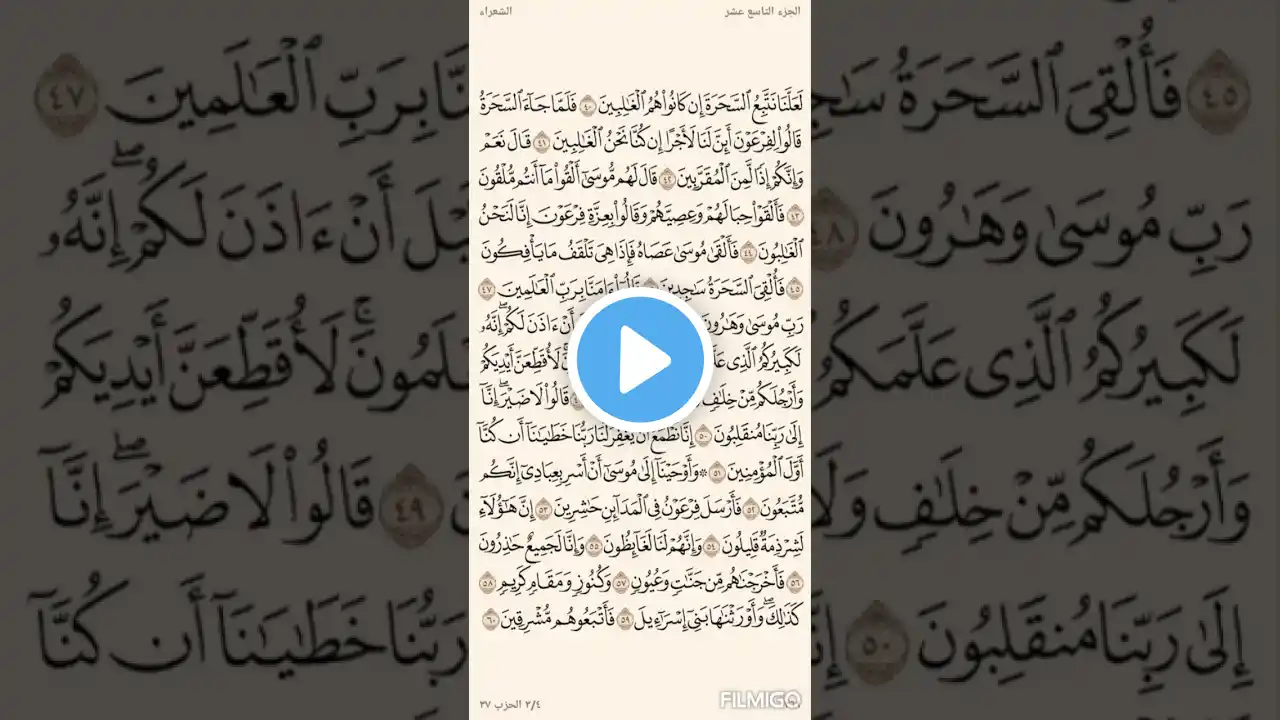 الجزء التاسع عشر
الشعراء
لَعَلَّنَا نَتَّبِعُ ٱلسَّحَرَةَ إِن كَانُوا۟ هُمُ ٱلْغَٰلِبِينَ ٤٠ فَلَمَّا جَآءَ ٱلسَّحَرَةُ
قَالُوا۟ لِفِرْعَوْنَ أَئِنَّ لَنَا لَأَجْرًا إِن كُنَّا نَحْنُ ٱلْغَٰلِبِينَ ٤١ قَالَ نَعَمْ
وَإِنَّكُمْ إِذًا لَّمِنَ ٱلْمُقَرَّبِينَ ٤٢ قَالَ لَهُم مُّوسَىٰٓ أَلْقُوا۟ مَآ أَنتُم مُّلْقُونَ
٤٣ فَأَلْقَوْا۟ حِبَالَهُمْ وَعِصِيَّهُمْ وَقَالُوا۟ بِعِزَّةِ فِرْعَوْنَ إِنَّا لَنَحْنُ
ٱلْغَٰلِبُونَ ٤٤ فَأَلْقَىٰ مُوسَىٰ عَصَاهُ فَإِذَا هِىَ تَلْقَفُ مَا يَأْفِكُونَ
٤٥ فَأُلْقِىَ ٱلسَّحَرَةُ سَٰجِدِينَ قَالُوٓا۟ ءَامَنَّا بِرَبِّ ٱلْعَٰلَمِينَ ٤٧
رَبِّ مُوسَىٰ وَهَٰرُونَ أَنْ ءَاذَنَ لَكُمْ ۖ إِنَّهُۥ
لَكَبِيرُكُمُ ٱلَّذِى لَأُقَطِّعَنَّ أَيْدِيَكُمْ
وَأَرْجُلَكُم مِّنْ خِلَٰفٍ قَالُوا۟ لَا ضَيْرَ ۖ إِنَّآ
إِلَىٰ رَبِّنَا مُنقَلِبُونَ ٥٠ إِنَّا نَطْمَعُ أَن يَغْفِرَ لَنَا رَبُّنَا خَطَٰيَٰنَآ أَن كُنَّآ
أَوَّلَ ٱلْمُؤْمِنِينَ ٥١ ۞ وَأَوْحَيْنَآ إِلَىٰ مُوسَىٰٓ أَنْ أَسْرِ بِعِبَادِىٓ إِنَّكُم
مُّتَّبَعُونَ ٥٢ فَأَرْسَلَ فِرْعَوْنُ فِى ٱلْمَدَآئِنِ حَٰشِرِينَ ٥٣ إِنَّ هَٰٓؤُلَآءِ
لَشِرْذِمَةٌ قَلِيلُونَ ٥٤ وَإِنَّهُمْ لَنَا لَغَآئِظُونَ ٥٥ وَإِنَّا لَجَمِيعٌ حَٰذِرُونَ
٥٦ فَأَخْرَجْنَٰهُم مِّن جَنَّٰتٍ وَعُيُونٍ ٥٧ وَكُنُوزٍ وَمَقَامٍ كَرِيمٍ ٥٨
كَذَٰلِكَ ۖ وَأَوْرَثْنَٰهَا بَنِىٓ إِسْرَٰٓءِيلَ ٥٩ فَأَتْبَعُوهُم مُّشْرِقِينَ ٦٠
٣/٤ الحزب ٣٧
FILMIGO